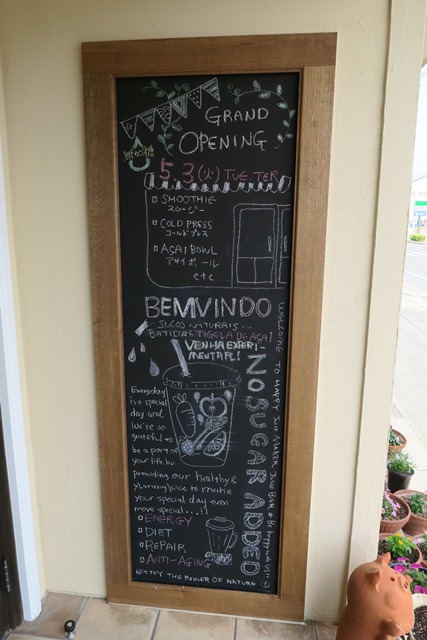 GRAND
OPENING
5.3(火) TUE.TER
□ SMOOTHIE
スムージー
□ COLD PRESS
コールドプレス
□ AÇAI BOWL
アサイボール
etc...
BEMVINDO
SUCOS NATURAIS...
BATIDAS TIGELA DE AÇAI
VENHA EXPERI-
MENTAR!
NO SUGAR ADDED
WELCOME TO HAPPY JUICE MAKER JUICE BAR & Be happy with us!
Everyday
is a special
day and
We're so
grateful to
be a part of
your life by
providing our healthy &
yummy juice to make
your special day even
more special...!
□ ENERGY
□ DIET
□ REPAIR
□ ANTI-AGING
ENJOY THE POWER OF NATURE